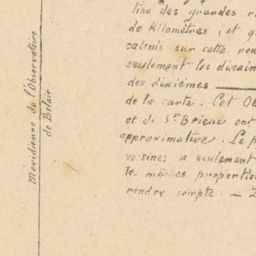 Méridienne de l'Observatoire
de Bélair
line des grandes
de Kilomètres, et q
calculs sur cette
seulement les
des dixièmes
de la carte. Cet Ob
et de St Brieuc ont
approximative. Le p
a seulement
les mêmes proportio
rendre compte. —